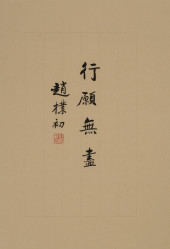 行願無盡
趙樸初